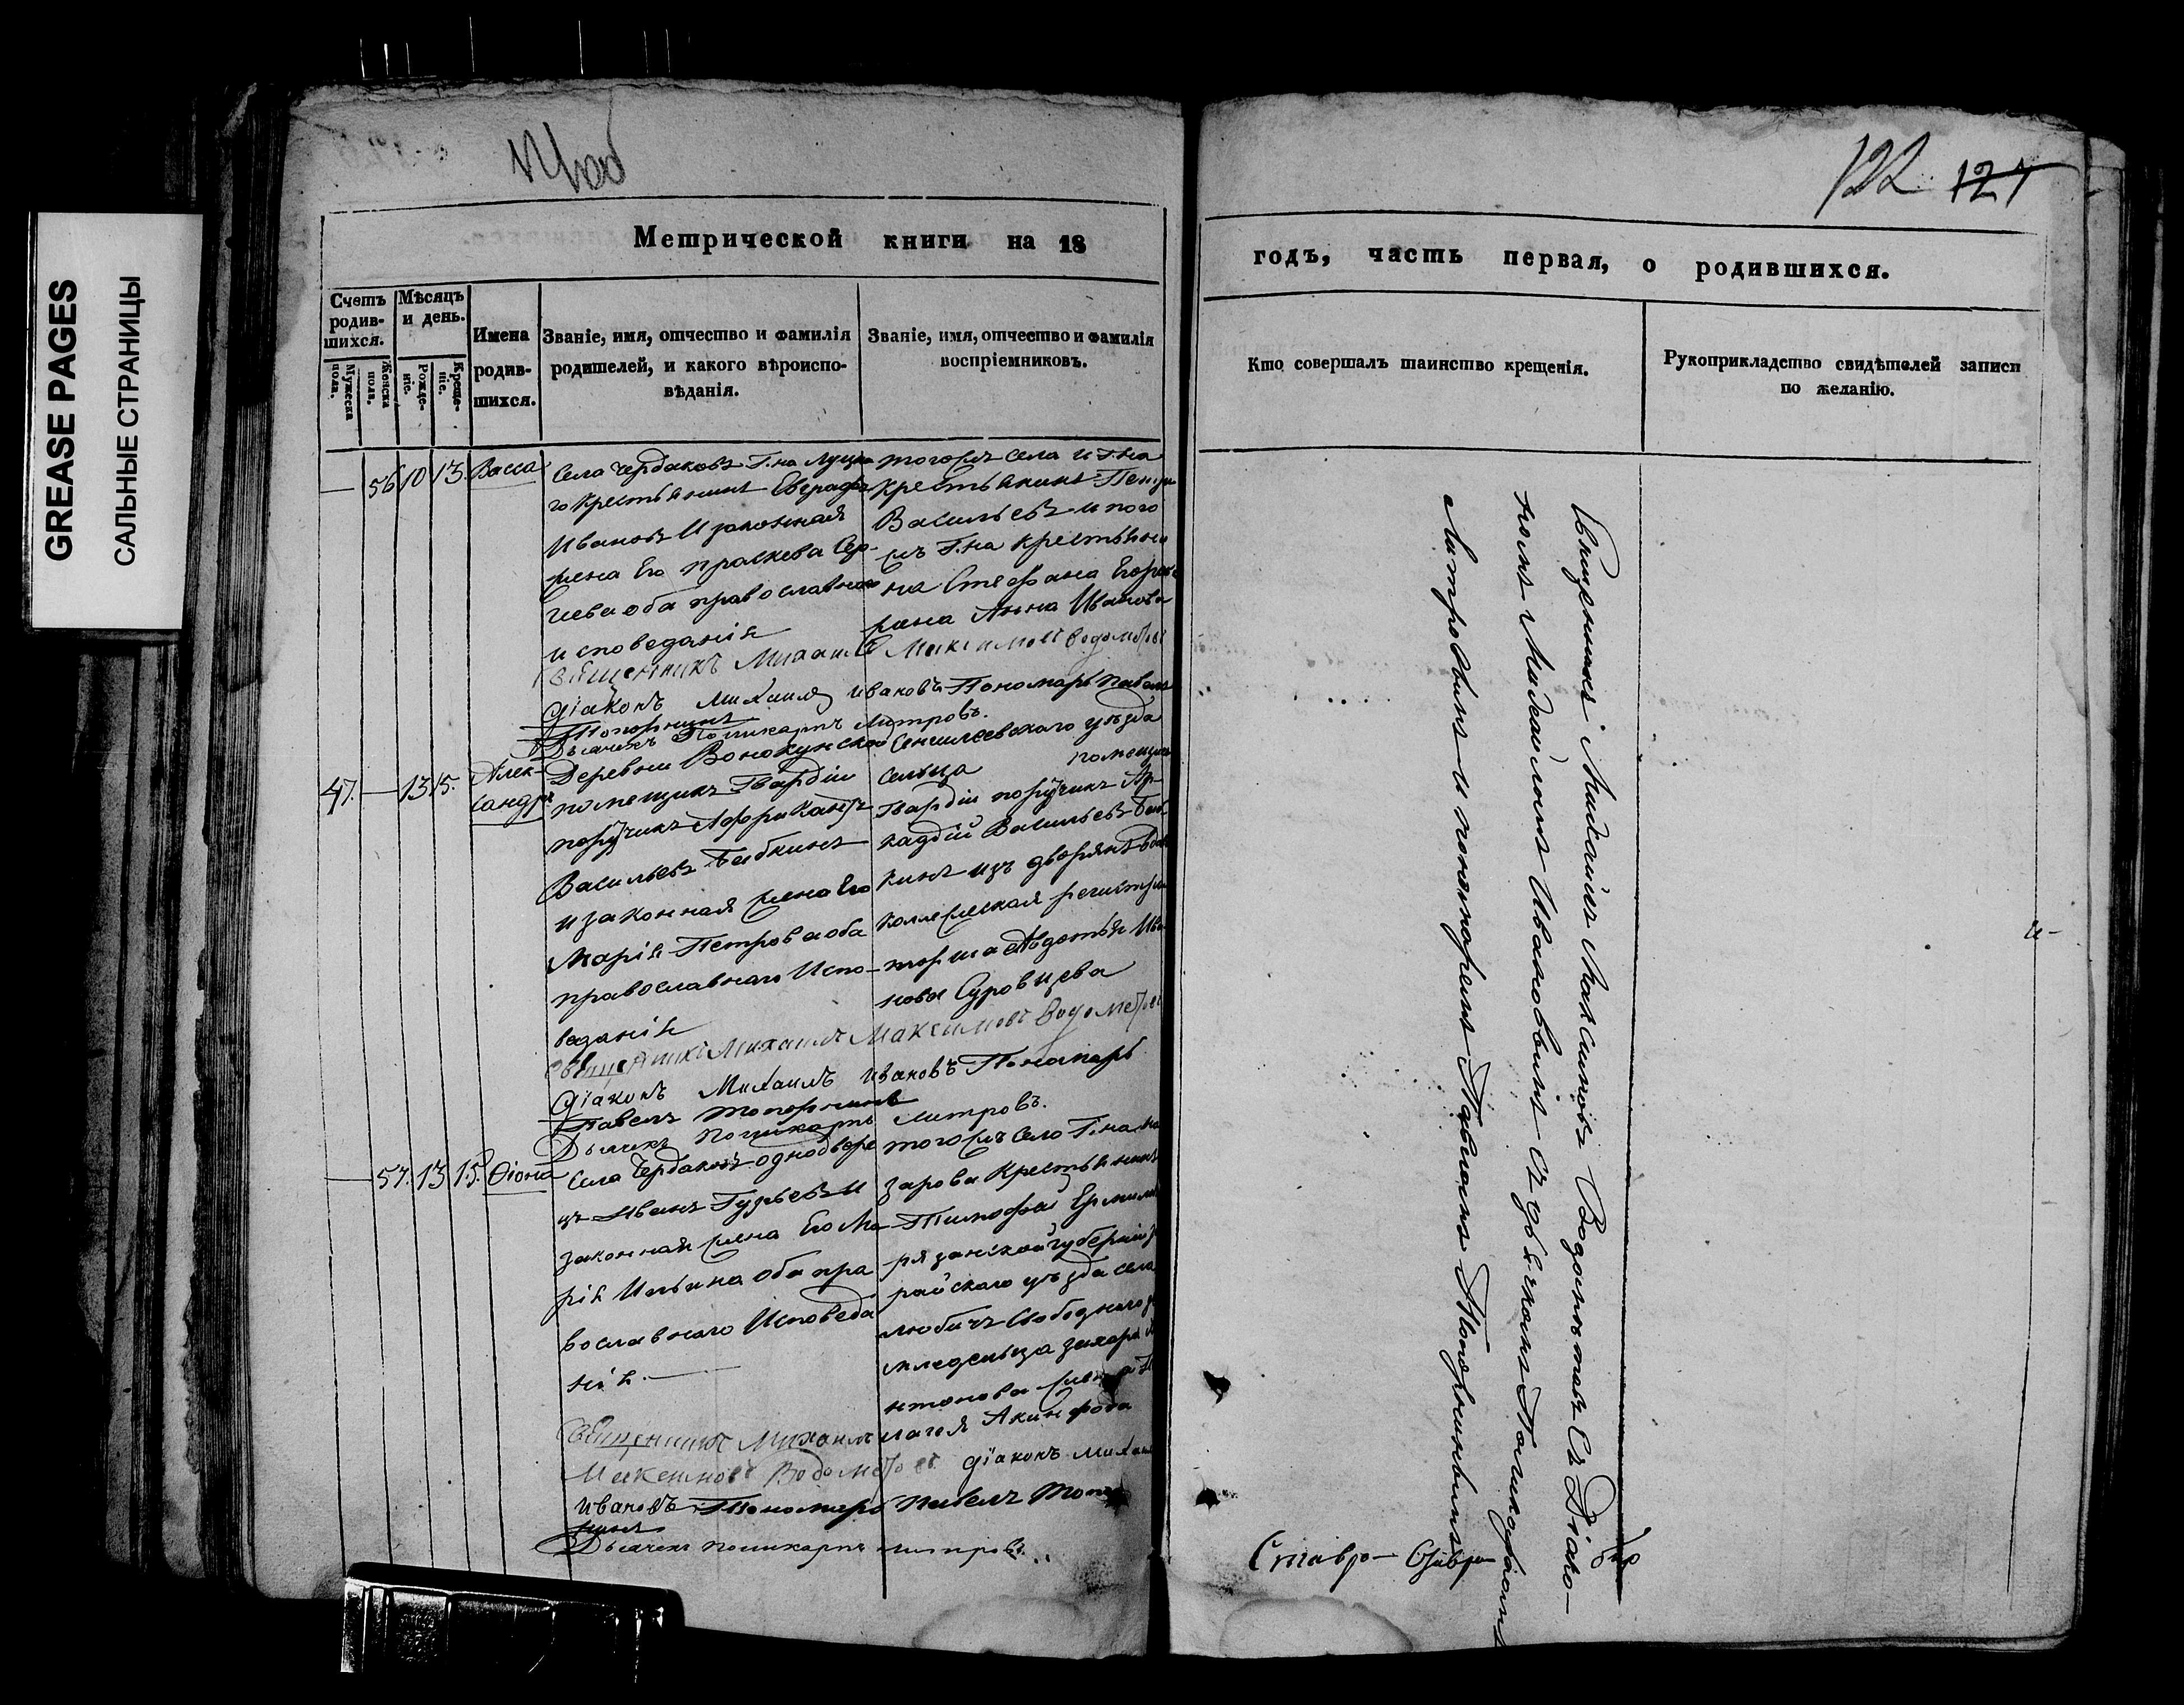 GREASE PAGES
САЛЬНЫЕ СТРАНИЦЫ
122 121
Метрической книги на 18
годъ, часть первая, о родившихся.
Счетъ родив-шихся.
Мужеска пола.
Женска пола.
Мѣсяцъ и день.
Рожде-ніе.
Креще-ніе.
Имена родив-шихся.
Званіе, имя, отчество и фамилія родителей, и какого вѣроиспо-вѣданія.
Званіе, имя, отчество и фамилія воспріемниковъ.
Кто совершалъ таинство крещенія.
Рукоприкладство свидѣтелей записи по желанію.
— 56 10 13. Васса
Села Чердаковъ Г.на
го крестьянинъ Евграфъ
Ивановъ и законная
жена Его праскева Сер-
гиева оба православнаго
исповеданія
тогожъ села и Г.на
крестьянинъ
Васильевъ и того
жъ Г.на крестьяни
на Стефана Егорова
жена Анна Иванова
Священникъ Михаилъ Максимовъ Водометовъ
Діаконъ Михаилъ Ивановъ Пономарь Павелъ
Топорнинъ
Дьячекъ Поликарпъ Митровъ.
47. — 13 15. Алек-
сандръ
Деревни
помещикъ Гвардіи
поручикъ Африканъ
Васильевъ Бабкинъ
и законная жена Его
Марія Петрова оба
православнаго Испо-
веданія
Сенгилеевскаго уезда
сельца помещикъ
Гвардіи поручикъ Ар-
кадій Васильевъ Баб
кинъ изъ дворянъ
коллежская регистра
торша Авдотья Ива
нова Суровцева
Священникъ Михаилъ Максимовъ Водометовъ
Діаконъ Михаилъ Ивановъ Пономарь
Павелъ Топорнинъ
Дьячекъ Поликарпъ Митровъ.
— 57. 13 15. Ѳіона
Села Чердаковъ однодворе
цъ Иванъ Гурьевъ и
законная жена Его Ма
рія Ильина оба пра
вославнаго Исповеда
нія. —
тогожъ село Г.на На
зарова Крестьянинъ
Тимофей
рязанской губерніи
райскаго уезда села
любичъ
захара
нтонова жена
лагея Акинфова
Священникъ Михаилъ
Максимовъ Водометовъ Діаконъ Михаилъ
Ивановъ Пономарь Павелъ Топор
нинъ
Дьячекъ Поликарпъ Митровъ.
Священникъ Михаилъ Максимовъ Водометовъ Съ Діако-
номъ Михайломъ Ивановымъ Съ дьячкомъ Поликарпомъ
Митровымъ и пономаремъ Павломъ Топорнинымъ
Ставро-